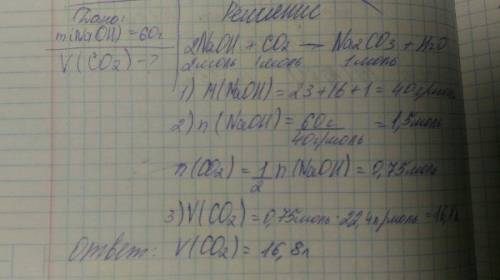 Дано:
m(NaOH) = 60г
V(CO2) - ?
Решение
2NaOH + CO2 → Na2CO3 + H2O
2моль 1моль 1моль
1) M(NaOH) = 23+16+1 = 40г/моль
2) n(NaOH) = 60г/40г/моль = 1,5моль
n(CO2) = 1/2 n(NaOH) = 0,75моль
3) V(CO2) = 0,75моль · 22,4л/моль = 16,8л
Ответ: V(CO2) = 16,8л